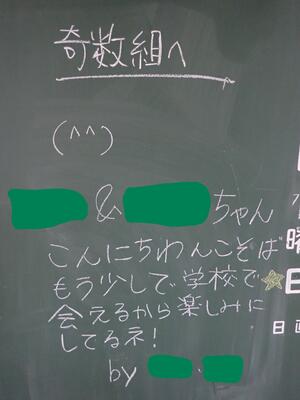 奇数組へ
(^^)
& ちゃん
こんにちわんこそば
もう少しで学校で
会えるから楽しみに
してるネ!
by ・
曜
日
日直